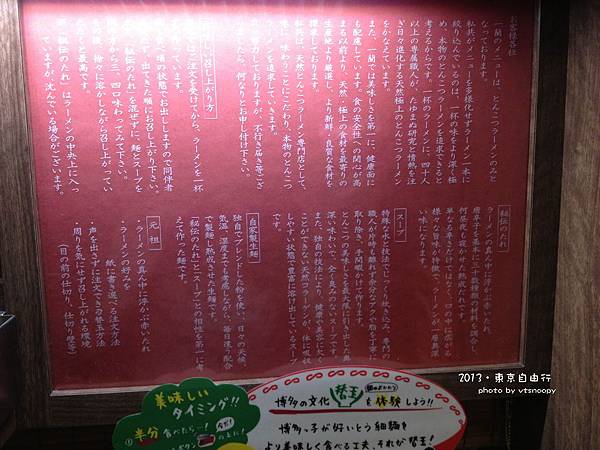 お客様各位
一蘭のメニューは、とんこつラーメンのみと
なっております。
私共がメニューを多様化せずラーメン一本に
絞り込んでいるのは、一杯の味をより深く極
め、本物のとんこつラーメンを追求できると
考えるからです。一杯のラーメンに、四十人
以上の専属職人が、たゆまぬ研究と情熱を注
ぎ日々進化する天然極上のとんこつラーメン
をかなえています。
また、一蘭では美味しさを第一に、健康面に
も配慮しています。食の安全性への関心が高
まる以前より、天然・極上の食材を最寄りの
生産地より厳選し、より新鮮・良質な食材を
探求しております。
私共は、天然とんこつラーメン専門店として、
味に、味わうことにこだわり、本物のとんこつ
ラーメンを追求していきます。
努力しておりますが、不行き届き等ござ
いましたら、何なりとお申し付け下さい。
しい召し上がり方
はご注文を受けてから、ラーメンを一杯
作っています。
食べ頃の状態でお出ししますので同伴者
ず、出てきた順にお召し上がり下さい。
「秘伝のたれ」を混ぜずに、麺とスープを
から三、四口味わってみて下さい。
の後、徐々に溶かしながら召し上がってい
だくと最高です。
「秘伝のたれ」はラーメンの中央上に入っ
ていますが、沈んでいる場合がございます。
秘伝のたれ
ラーメンの真ん中に浮かぶ赤いたれ。
唐辛子を基本に三十数種類の材料を調合し、
何昼夜も寝かせた熟成たれです。
単なる辛さだけでなく、口の中に広がる
様々な旨味が特徴で、スープが一層奥深
い味になります。
スープ
特殊な水と技法でじっくり炊き込み、専門の
職人が片時も離れず余分なアクや脂を丁寧に
取り除き、手間暇かけて作ります。
とんこつの美味しさを最大限に引き出した奥
深い味わいで、全く臭みのないスープです。
また、独自の技法により、健康や美容に欠く
ことができない天然コラーゲンが、体に吸収
しやすい状態で豊富に溶け出しているスープ
自家製生麺
独自でブレンドした粉を使い、日々の天候、
気温、湿度までも考慮しながら、毎日違う配合
で製麺し熟成させた生麺です。
「秘伝のたれ」と「スープ」との相性を第一に考
えて作った麺です。
元祖
・ラーメンの真ん中に浮かぶ赤いたれ
・ラーメンの好みを
紙に書き選べる注文方法
・声を出さずに注文できる替玉方法
・周りを気にせず召し上がれる環境
(目の前の仕切り、仕切り壁等)
2013・東京自由行
photo by vtsnoopy
美味しい
タイミング!!
①半分食べたら…!
ボタン
の上に!
博多の文化 替玉 を体験しよう!!
博多っ子が好いとう細麺を
より美味しく食べる工夫、それが替玉!